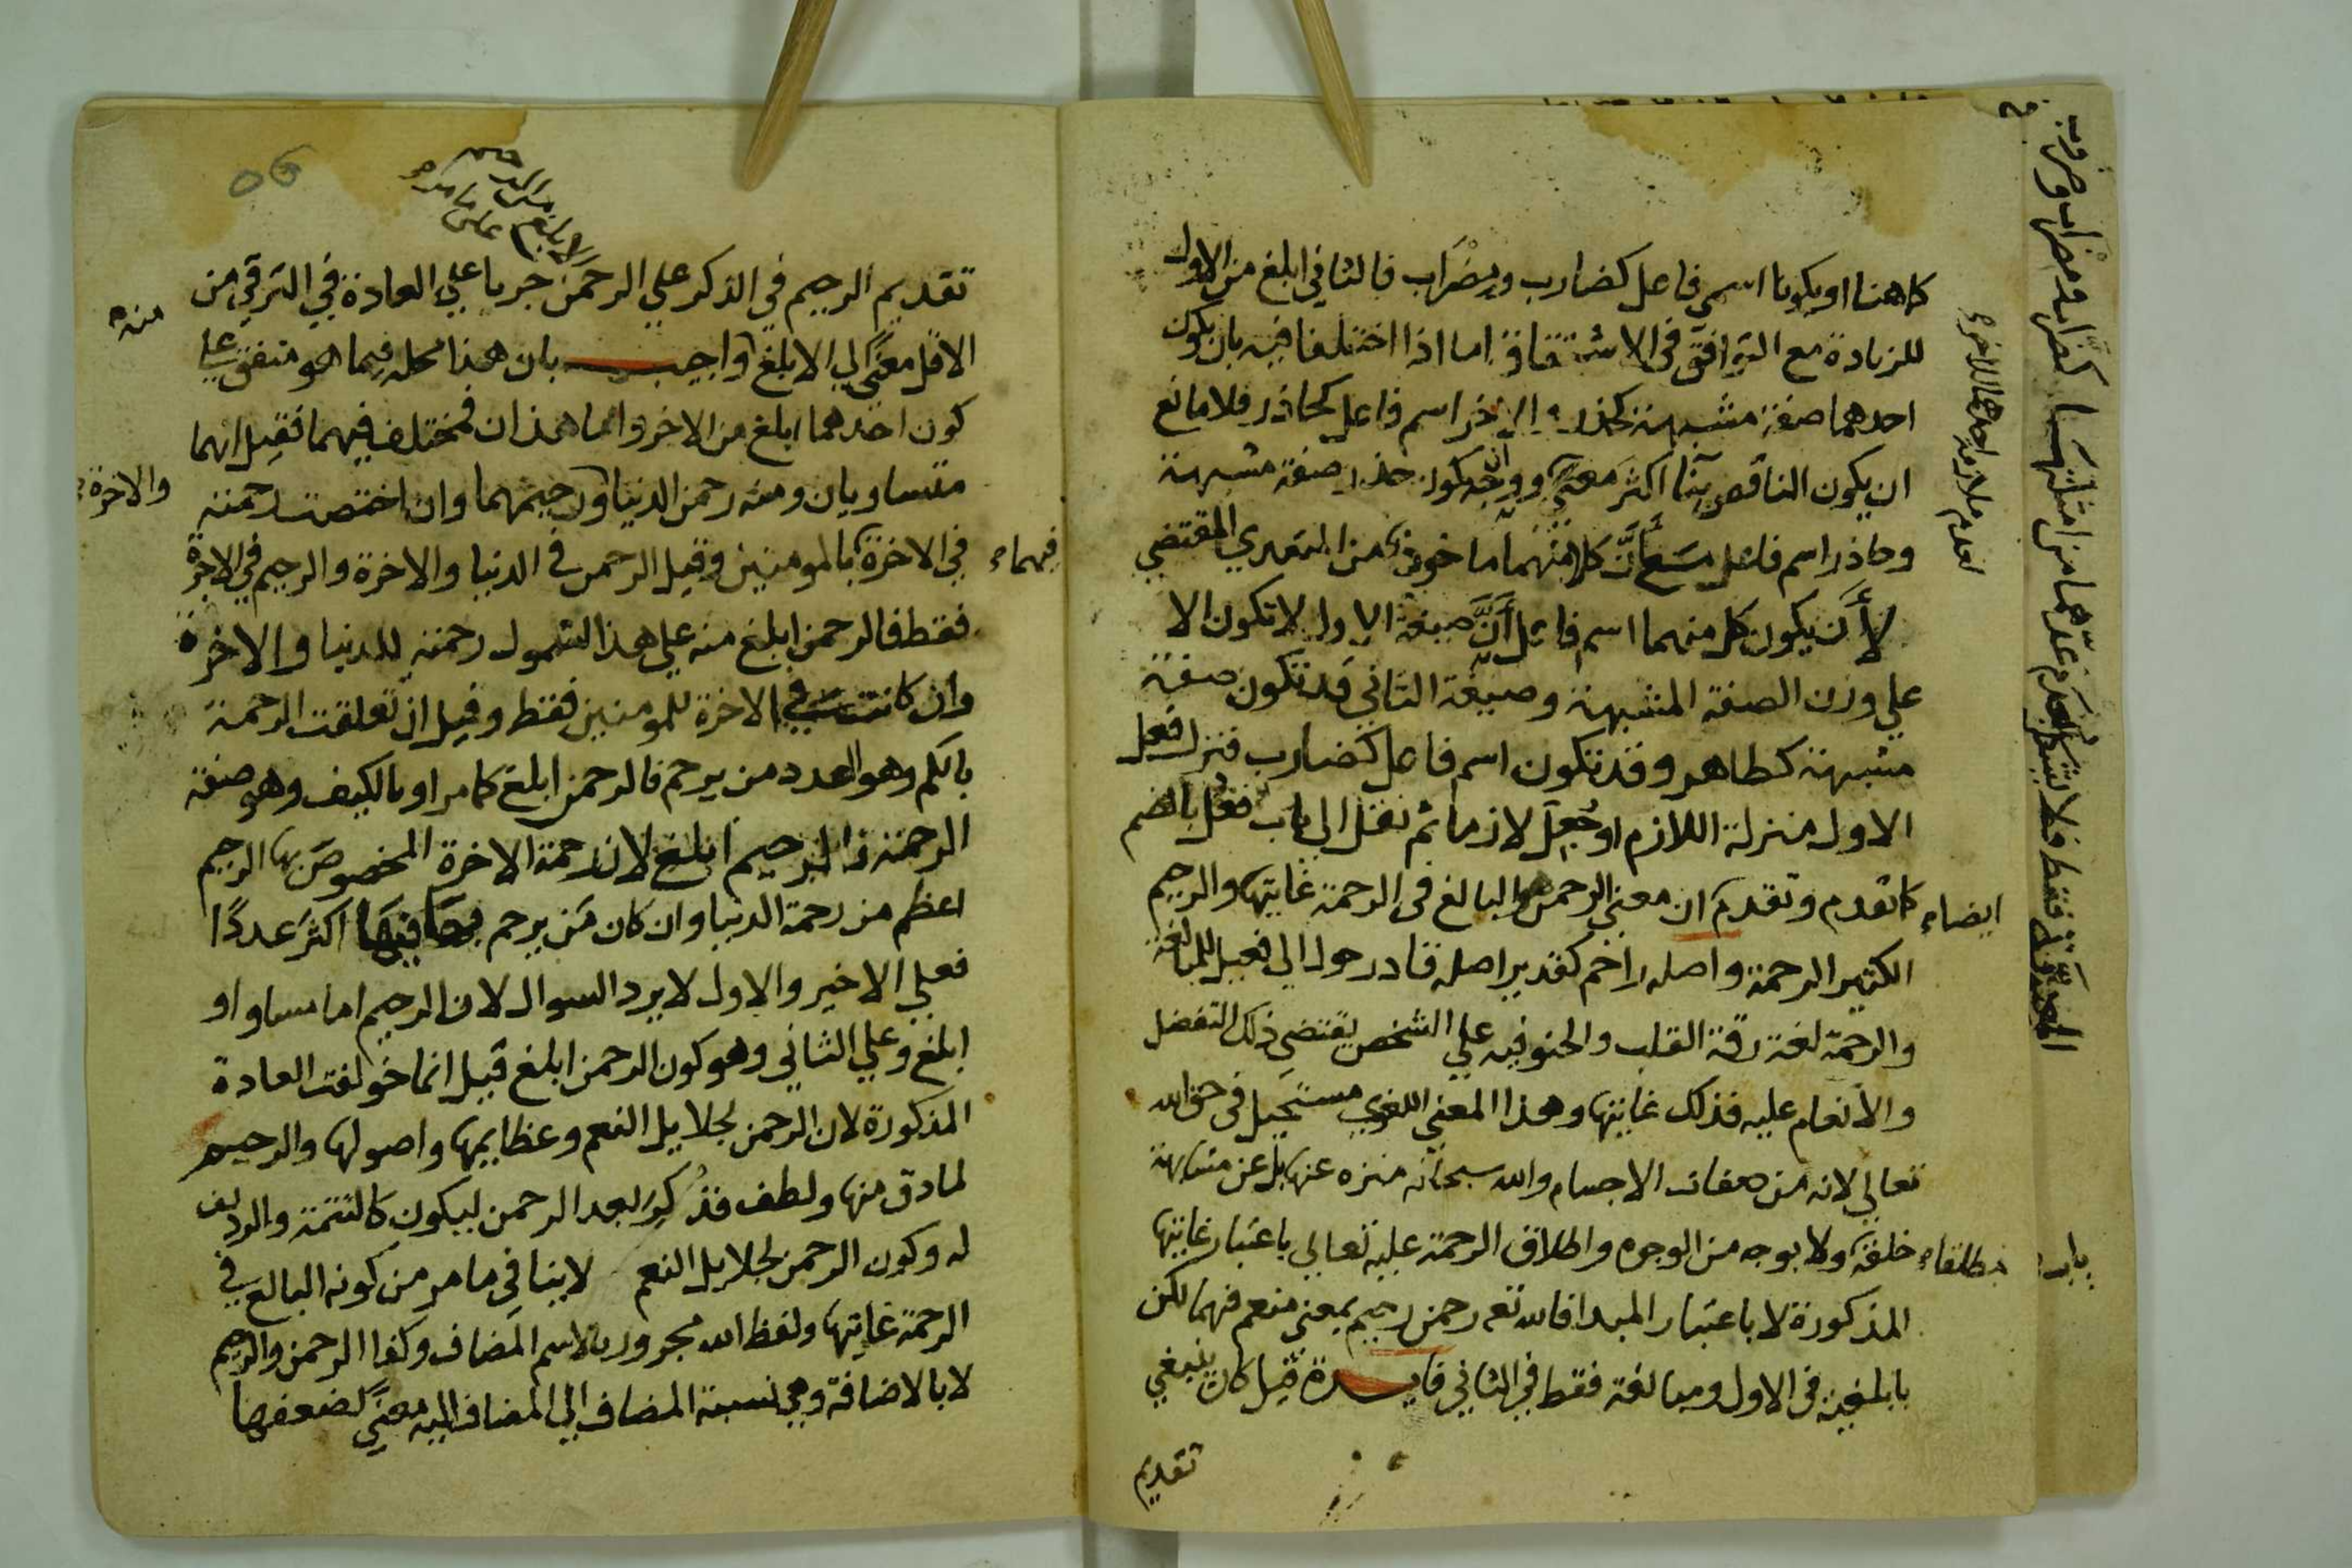 كما هنا او يكونا اسمي فاعل كضارب ومضراب فالثاني ابلغ من الاول
للزيادة مع التوافق في الاشتقاق اما اذا اختلفا فيه بان يكون
احدهما صفة مشبهة كحذر والاخر اسم فاعل كحاذر فلا مانع
ان يكون الناقص بنا اكثر معنى ووجه كون حذر صفة مشبهة
وحاذر اسم فاعل مع أنّ كلا منهما ماخوذ من المتعدي المقتضي
لأن يكون كل منهما اسم فاعل أنّ صيغة الاول لا تكون الا
علي وزن الصفة المشبهة وصيغة الثاني قد تكون صفة
مشبهة كطاهر وقد تكون اسم فاعل كضارب فنزل فعل
الاول منزلة اللازم او جُعِل لازما ثم نقل الي باب فعُل بالضم
ايضا
كما تقدم وتقدم ان معني الرحمن البالغ في الرحمة غايتها والرحيم
الكثير الرحمة واصله راحم كقدير اصله قادر حول الي فعيل للمبالغة
والرحمة لغة رقة القلب والحنو فيه علي الشخص يقتضي ذلك التفضل
والانعام عليه فذلك غايتها وهذا المعني اللغوي مستحيل في حق الله
تعالي لانه من صفات الاجسام والله سبحانه منزه عنها بل عن مشابهة
مطلقا
خلقه ولا بوجه من الوجوه واطلاق الرحمة عليه تعالي باعتبار غايتها
المذكورة لا باعتبار المبدا فالله تعه رحمن رحيم بمعني منعم فهما لكن
بابلغية في الاول ومبالغة فقط في الثاني فايدة قيل كان ينبغي
تقديم
لعدم ملازمة احدهما للاخر
تقديم الرحيم في الذكر علي الرحمن جريا علي العادة في الترقي من
الاقل معنىً الي الابلغ واجيب بان هذا محله فيما هو متفق علي
منه
كون احدهما ابلغ من الاخر واما هذان فمختلف فيهما فقيل انهما
متساويان ومنه رحمن الدنيا ورحيمهما وان اختصت رحمته
والاخرة
في الاخرة بالمومنين وقيل الرحمن في الدنيا والاخرة والرحيم في الاخرة
فيهما
فقط فالرحمن ابلغ منه علي هذا لشمول رحمته للدنيا والاخرة
وان كانت في الاخرة للمومنين فقط وقيل ان تعلقت الرحمة
بالكم وهو العدد من يرحم فالرحمن ابلغ كما مر او بالكيف وهو صفة
الرحمة فالرحيم ابلغ لان رحمة الاخرة المخصوص بها الرحيم
اعظم من رحمة الدنيا وان كان مَن يرحم فيها اكثر عددًا
فعلي الاخير والاول لا يرد السوال لان الرحيم اما مساو او
ابلغ وعلي الثاني وهو كون الرحمن ابلغ قيل انما خولفت العادة
المذكورة لان الرحمن لجلايل النعم وعظايمها واصولها والرحيم
لما دق منها ولطف فذُكِر بعد الرحمن ليكون كالتتمة والرديف
له وكون الرحمن لجلايل النعم لا ينافي ما مر من كونه البالغ في
الرحمة غايتها ولفظ الله مجرور بالاسم المضاف وكذا الرحمن والرحيم
لا بالاضافة وهي نسبة المضاف الي المضاف اليه معنىً لضعفها